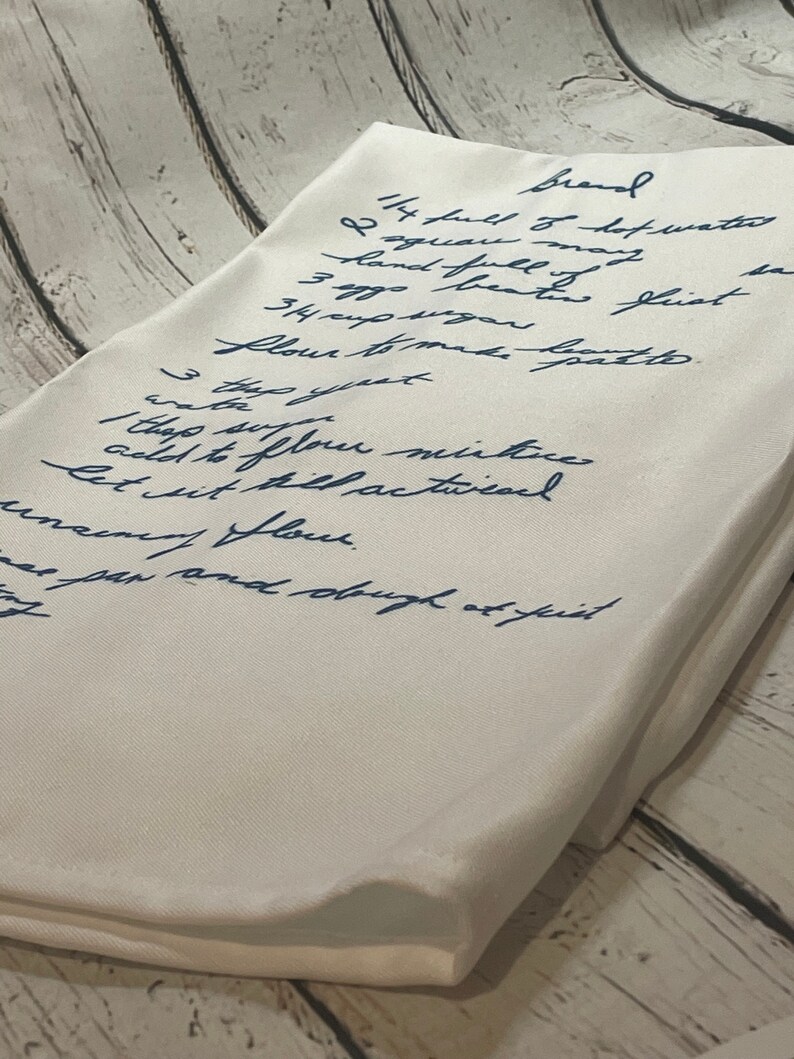 bread
1/4 full of hot water
2 square marg
hand full of sa
3 eggs beaten first
3/4 cup sugar
flour to make heavy paste
3 tbsp yeast
water
1 tbsp sugar
add to flour mixture
let sit till activised
flour.
pan and dough at first